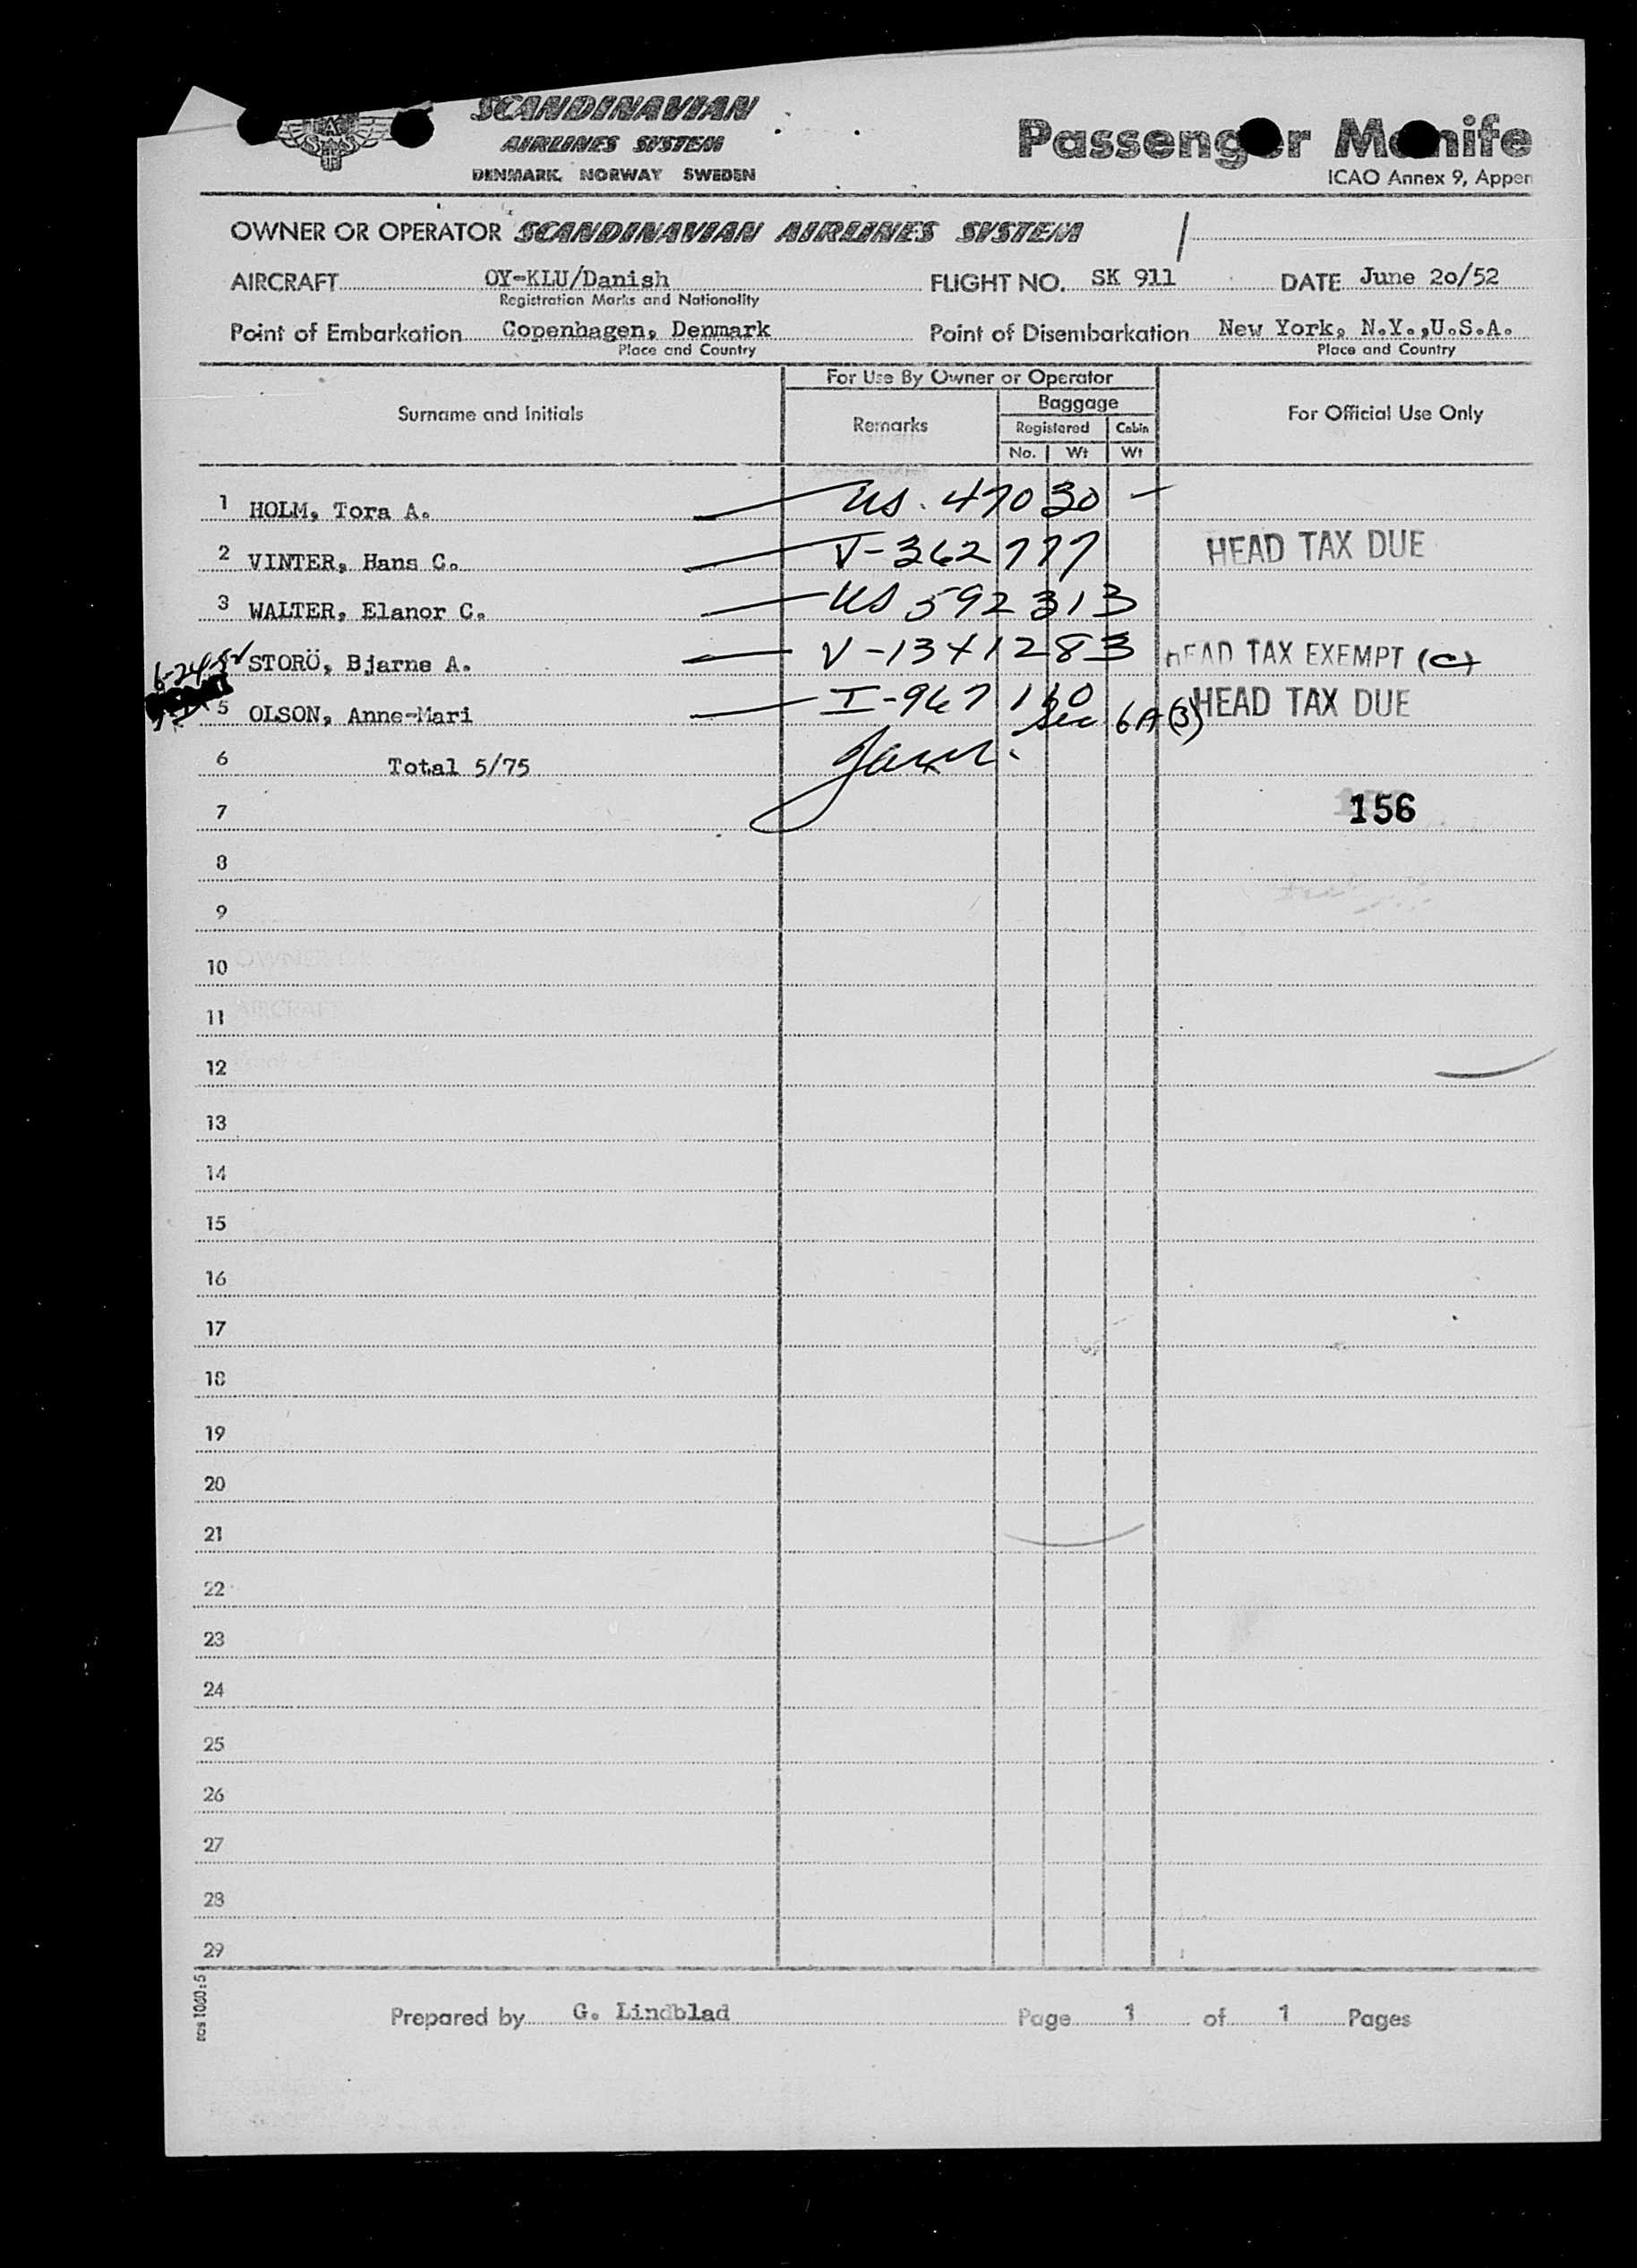 SCANDINAVIAN
AIRLINES SYSTEM
DENMARK NORWAY SWEDEN
Passenger Manife
ICAO Annex 9, Appen
OWNER OR OPERATOR SCANDINAVIAN AIRLINES SYSTEM
AIRCRAFT OY-KLU/Danish FLIGHT NO. SK 911 DATE June 20/52
Registration Marks and Nationality
Point of Embarkation Copenhagen, Denmark Point of Disembarkation New York, N.Y.,U.S.A.
Place and Country Place and Country
For Use By Owner or Operator
Surname and Initials Remarks Baggage For Official Use Only
Registered Cabin
No. Wt Wt
1 HOLM, Tora A. US. 47030 -
2 VINTER, Hans C. V-362777 HEAD TAX DUE
3 WALTER, Elanor C. US 592313
6-24-52 STORÖ, Bjarne A. V-1341283 HEAD TAX EXEMPT (C)
5 OLSON, Anne-Mari I-967110 HEAD TAX DUE
Sec 6A(3)
6 Total 5/75
7 156
8
9
10
11
12
13
14
15
16
17
18
19
20
21
22
23
24
25
26
27
28
29
sas 1060:5
Prepared by G. Lindblad Page 1 of 1 Pages